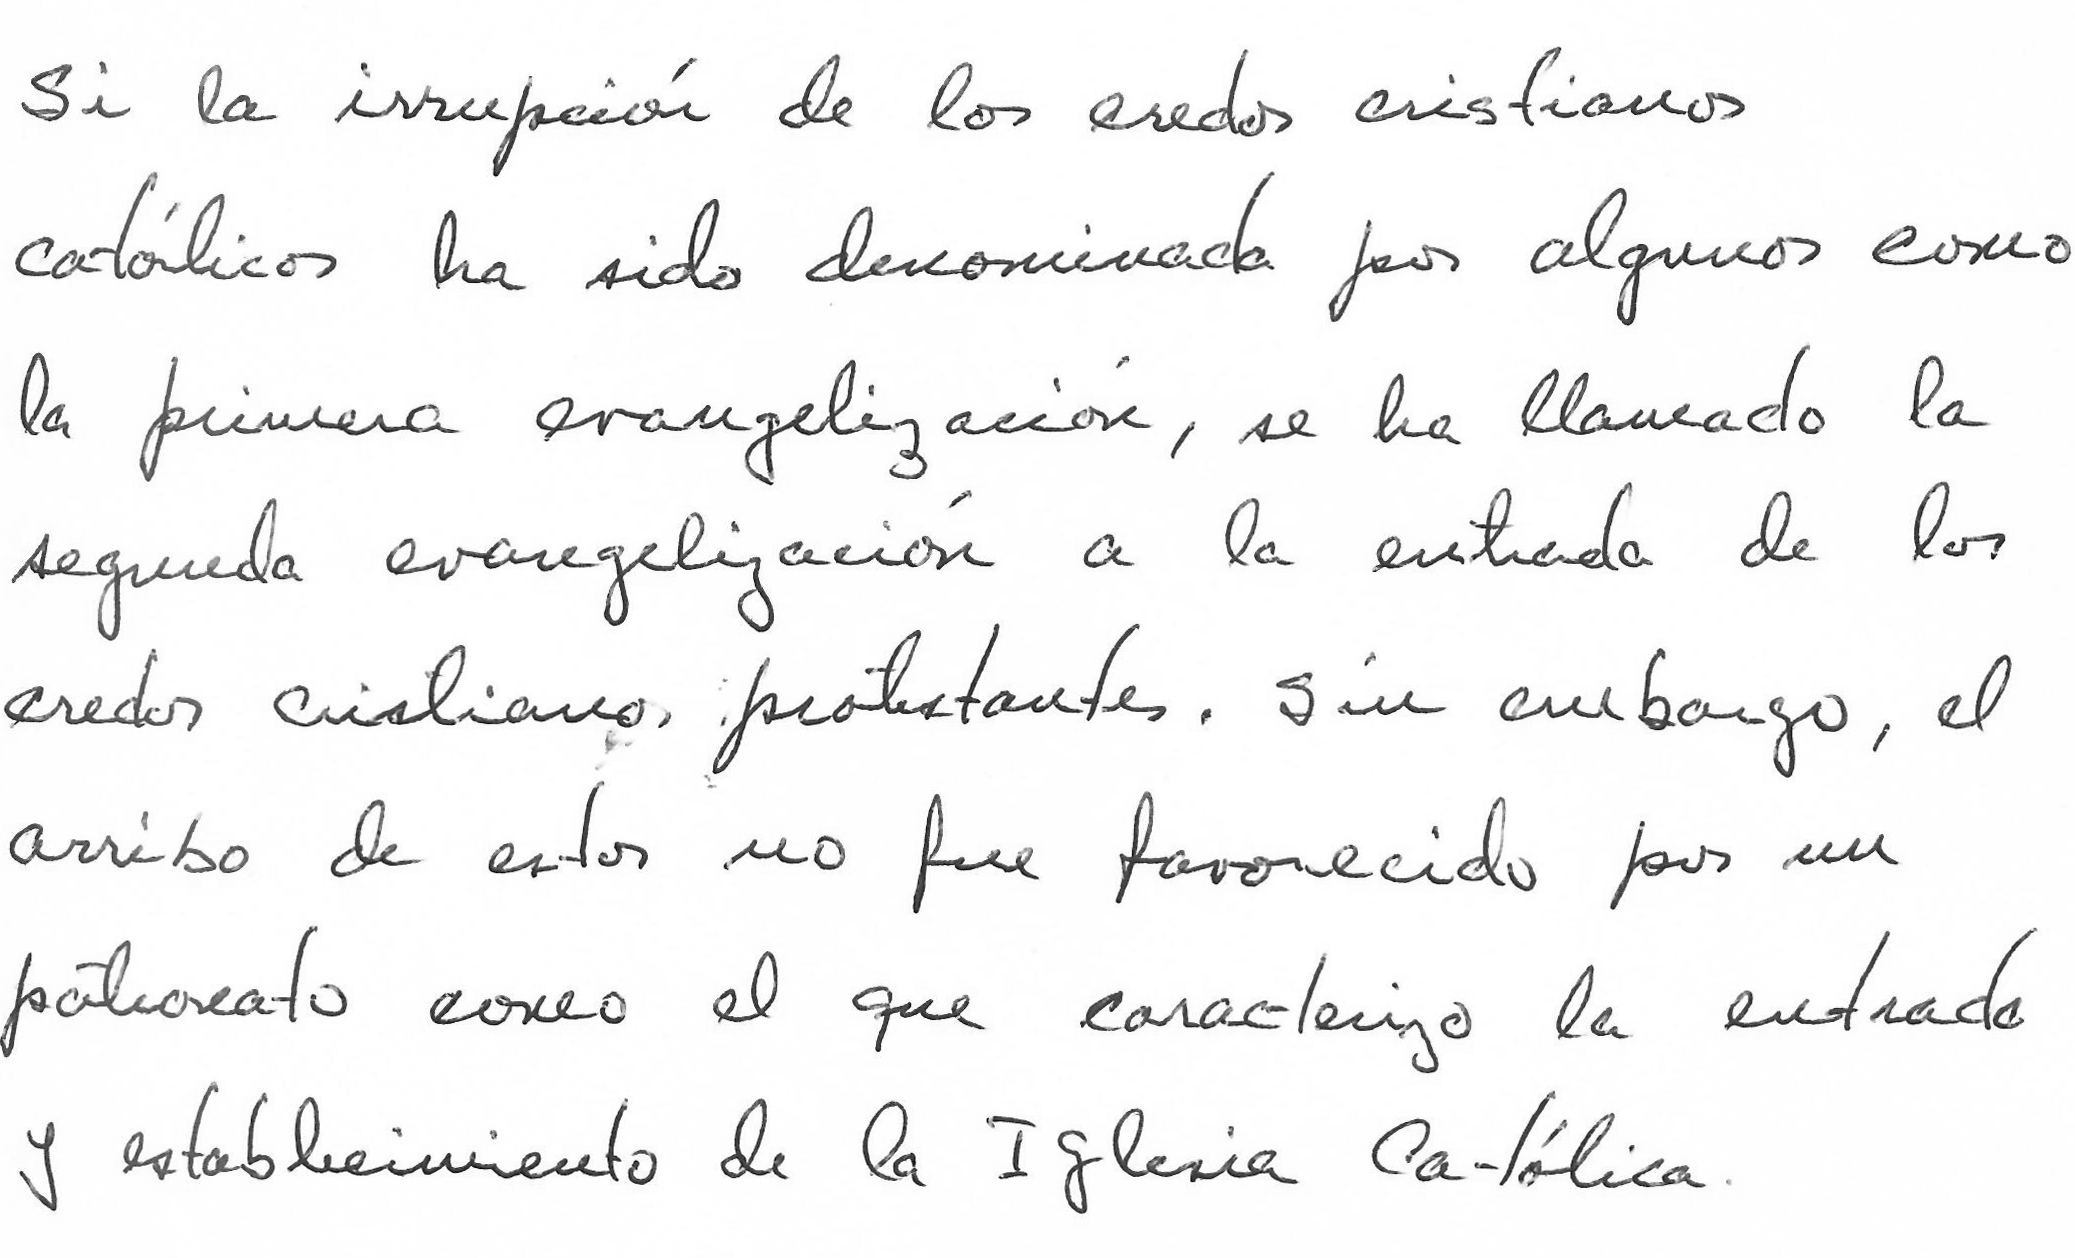 Si la irrupción de los credos cristianos
católicos ha sido denominada por algunos como
la primera evangelización, se ha llamado la
segunda evangelización a la entrada de los
credos cristianos protestantes. Sin embargo, el
arribo de estos no fue favorecido por un
patronato como el que caracterizo la entrada
y establecimiento de la Iglesia Católica.